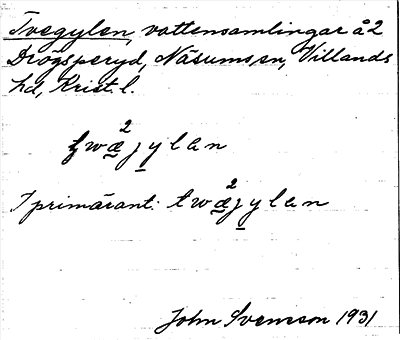 Tvegylen, vattensamlingar å 2
Drögsperyd, Näsums, sn, Villands
hd, Krist. l.
twæ²jylan
I primärant: twæ²jylan
John Svensson 1931